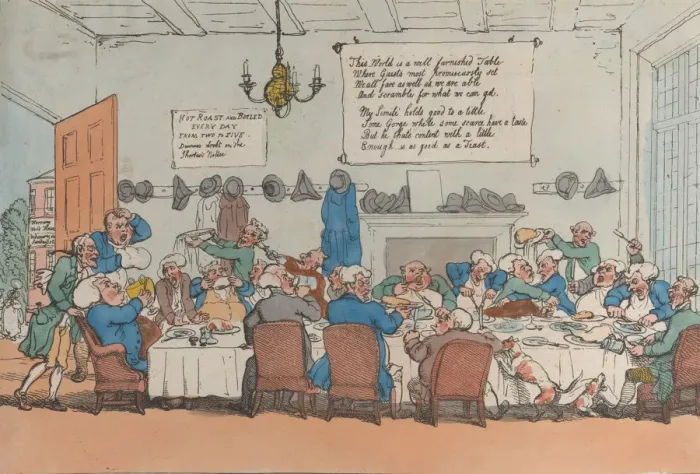 This World is a well furnished Table
Where Guests most promiscuously set
We all fare as well as we are able
And Scramble for what we can get.
My Simile holds good to a tittle
Some Gorge while some scarce have a taste
But he thats content with a little
Enough is as good as a Feast.
HOT ROAST AND BOILED
EVERY DAY
FROM TWO TO FIVE.
Dinners drest on the
Shortest Notice